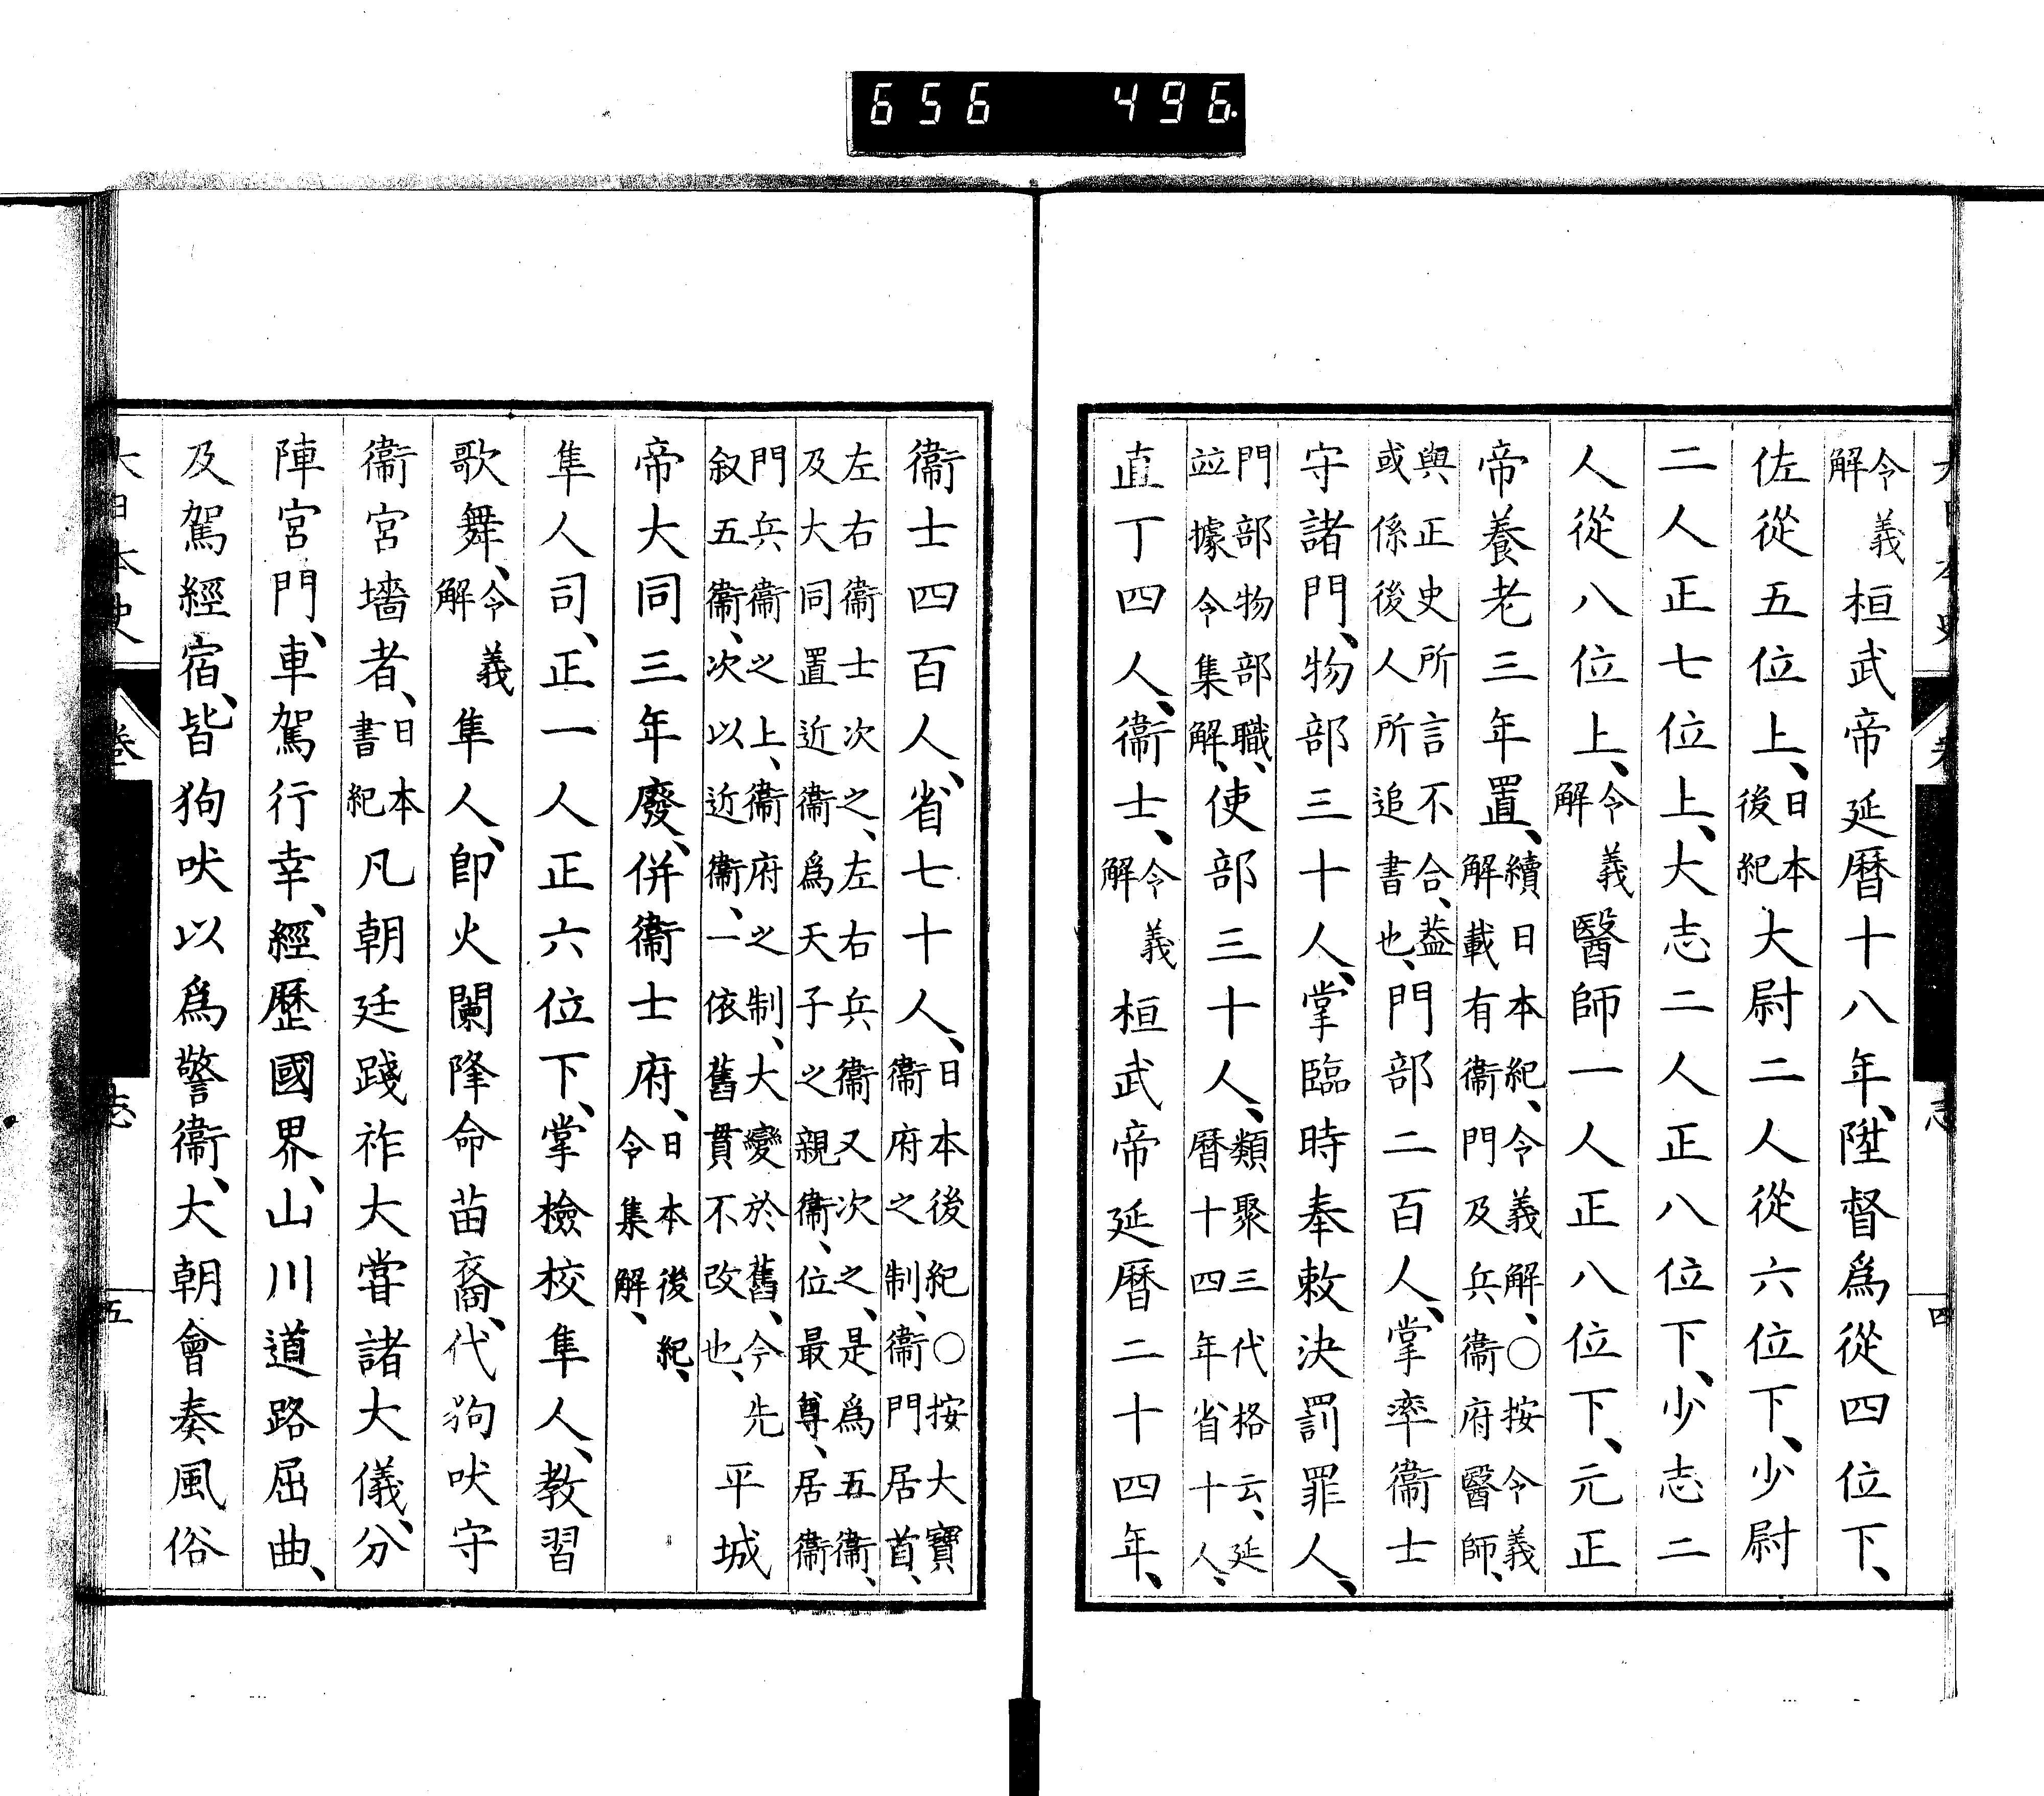 656 496
令義解桓武帝延曆十八年、陞督爲從四位下、
佐從五位上、日本後紀大尉二人從六位下、少尉
二人正七位上、大志二人正八位下、少志二
人從八位上、令義解醫師一人正八位下、元正
帝養老三年置、續日本紀、令義解、○按令義解載有衞門及兵衞府醫師、
與正史所言不合、蓋或係後人所追書也、門部二百人、掌率衞士
守諸門、物部三十人、掌臨時奉敕決罰罪人、
門部物部職、竝據令集解、使部三十人、類聚三代格云、延曆十四年省十人、
直丁四人、衞士、令義解桓武帝延曆二十四年、
衞士四百人、省七十人、日本後紀○按大寶衞府之制、衞門居首、
左右衞士次之、左右兵衞又次之、是爲五衞、及大同置近衞爲天子之親衞、位最尊、居衞
門兵衞之上、衞府之制、大變於舊、今先叙五衞、次以近衞、一依舊貫不改也、平城
帝大同三年廢、併衞士府、日本後紀、令集解、
隼人司、正一人正六位下、掌檢校隼人、教習
歌舞、令義解隼人、卽火闌降命苗裔、代狗吠守
衞宮墻者、日本書紀凡朝廷踐祚大嘗諸大儀、分
陣宮門、車駕行幸、經歷國界、山川道路屈曲、
及駕經宿、皆狗吠以爲警衞、大朝會奏風俗
大日本史 卷 志 五